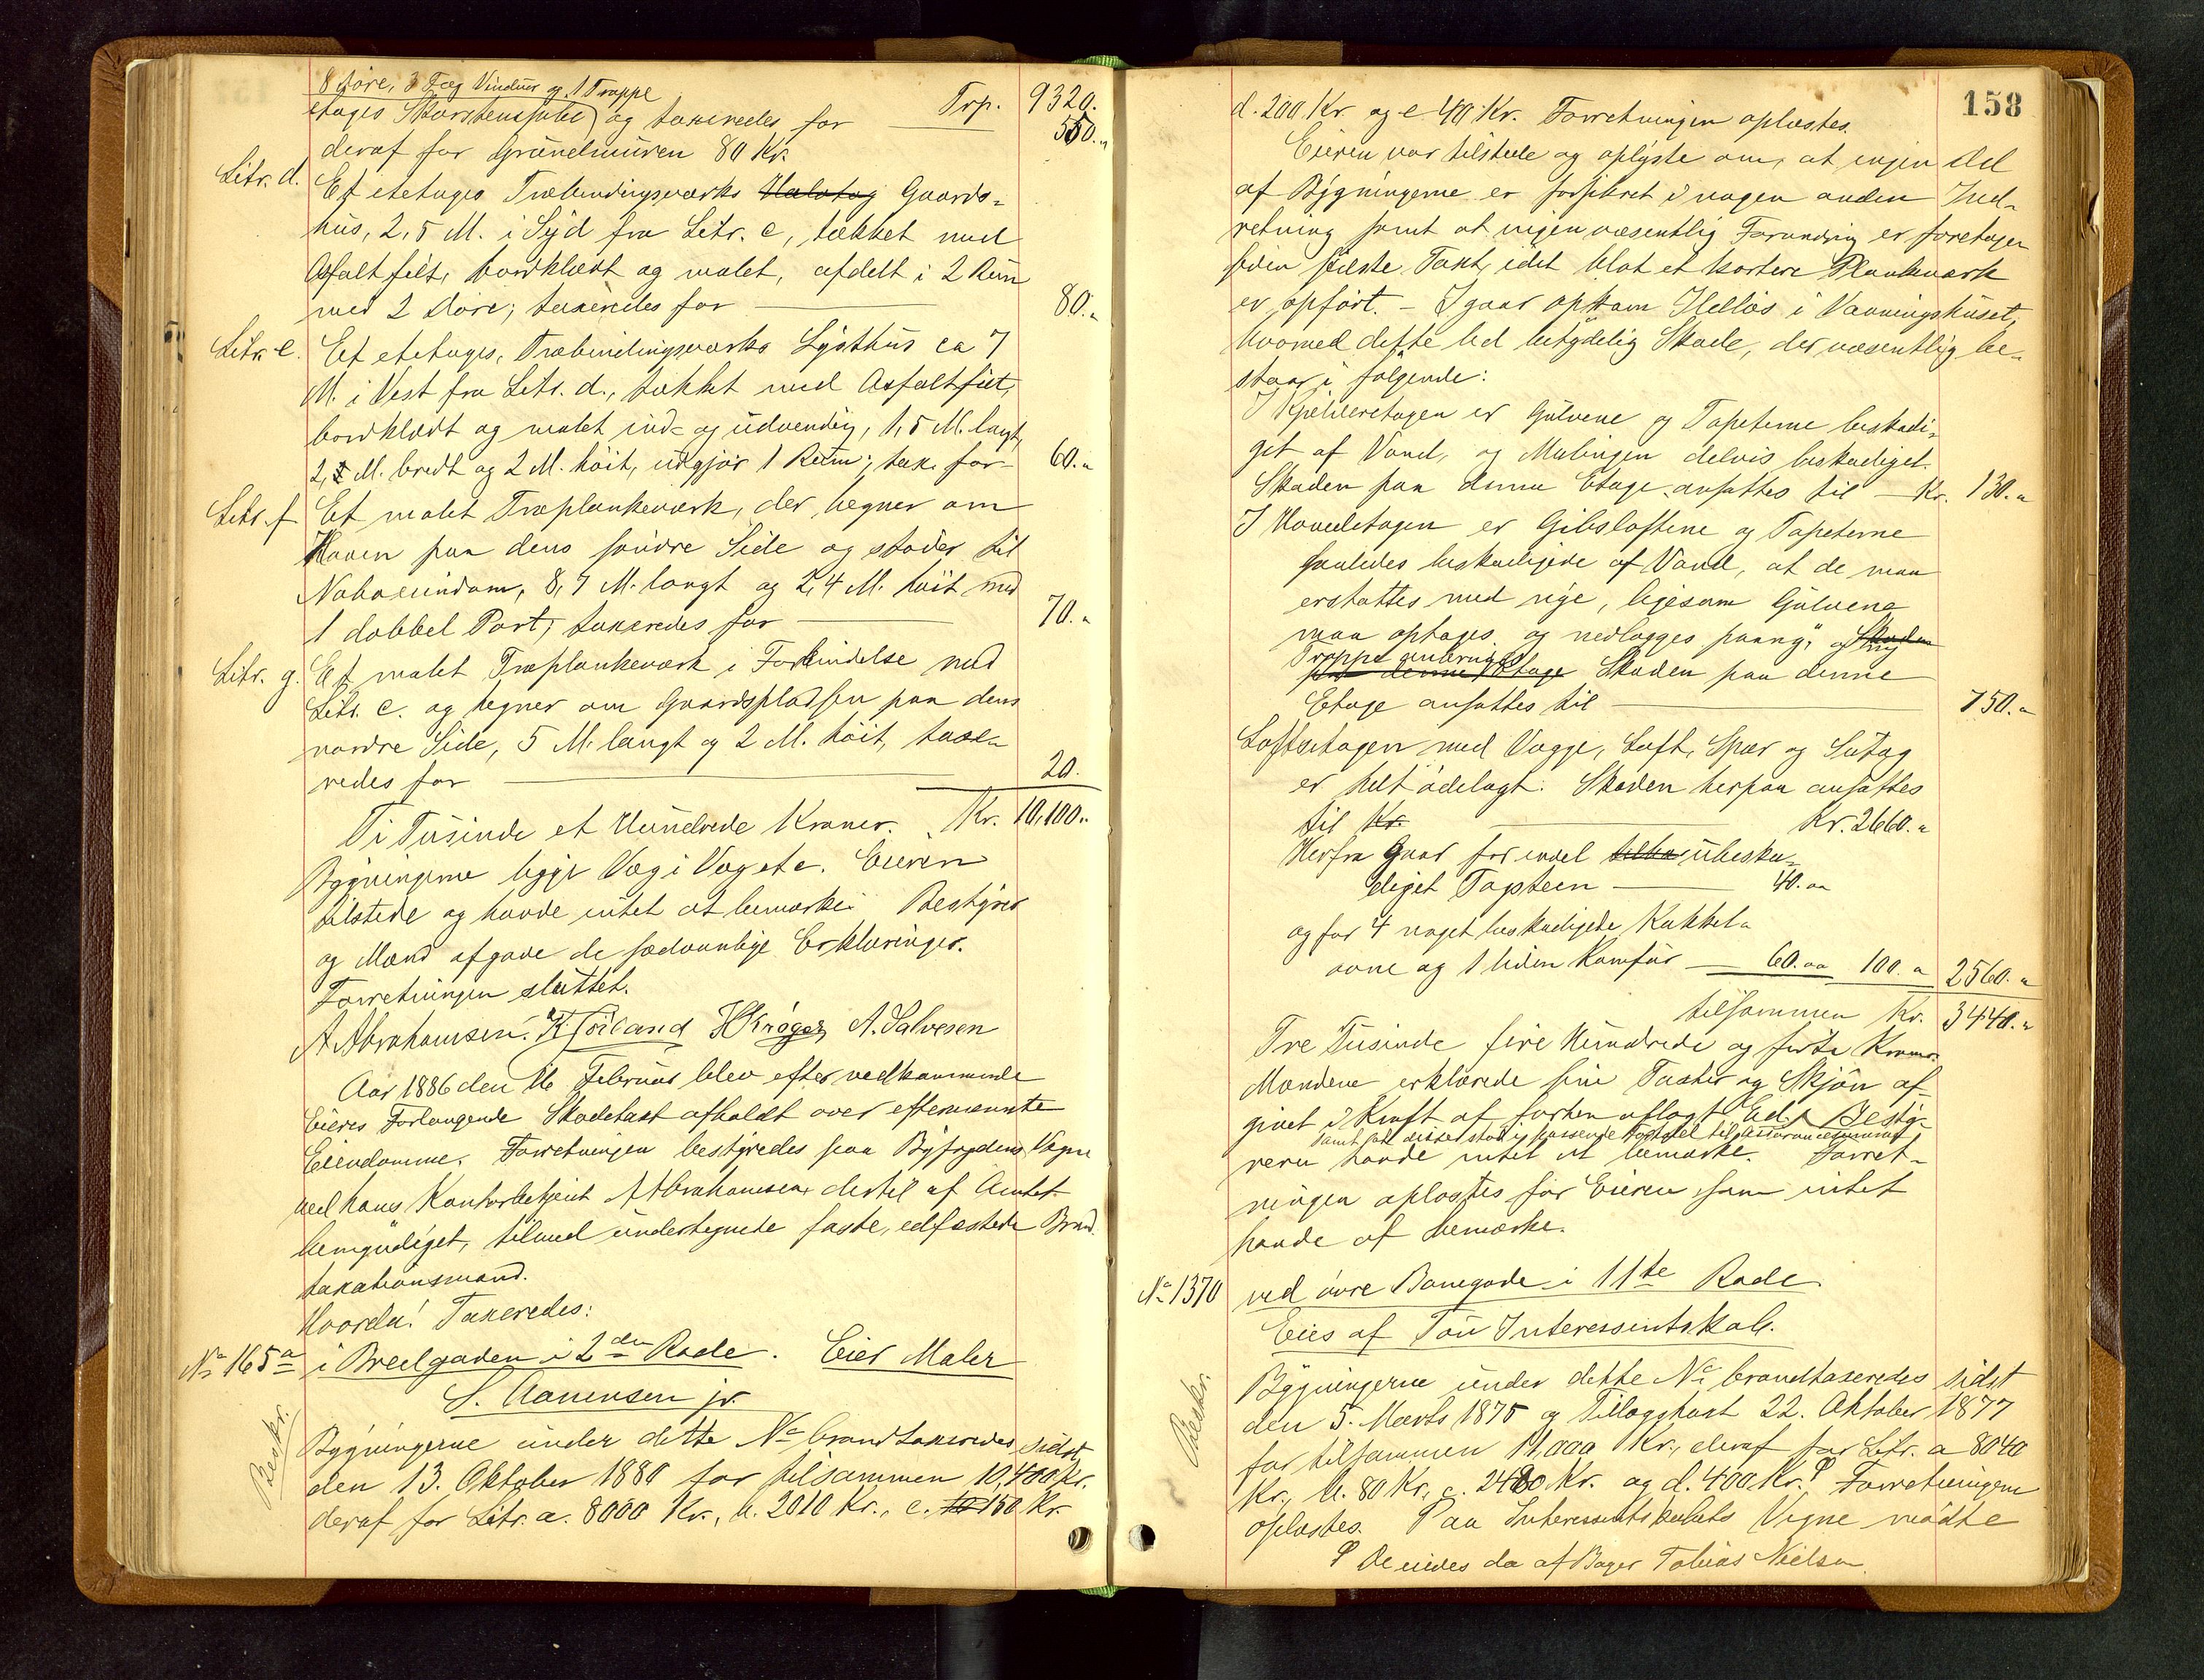 8 Döre, 3 Fag Vinduer og 1 Trappe
etages Skorstenspibe) og taxeredes for
Trp. 9320.
550."
deraf for Grundmuren 80 Kr.
Litr. d. Et etetages Træbindingsværks Halvtag Gaards-
hus, 2,5 M. i Syd fra Litr. c, tækket med
Asfaltfilt, bordklædt og malet, afdelt i 2 Rum
med 2 Döre; taxeredes for 80."
Litr. e. Et etetages, Træbindingsværks Lysthus ca 7
M. i Vest fra Litr. d., tækket med Asfaltfilt,
bordklædt og malet ind- og udvendig, 1,5 M. langt,
M. bredt og 2 M. höit, udgjör 1 Rum; tax. for 60."
Litr. f Et malet Træplankeværk, der hegner om
Haven paa dens söndre Side og støder til
Naboeiendom, 8,7 M. langt og 2,4 M. höit med
1 dobbel Port; taxeredes for 70."
Litr. g. Et malet Træplankeværk i Forbindelse med
Litr. c. og hegner om Gaardspladsen paa dens
nordre Side, 5 M. langt og 2 M. höit, taxe-
redes for 20.
Ti Tusinde et Hundrede Kroner. Kr. 10,100."
Bygningerne ligge Væg i Væg etc. Eieren
tilstede og havde intet at bemærke. Bestyrer
og Mænd afgave de sædvanlige Erklæringer.
Forretningen sluttet.
A Abrahamsen. K Förland H Kröger A. Salvesen
Aar 1886 den 16 Februar blev efter vedkommende
Eieres Forlangende Skadetaxt afholdt over efternævnte
Eiendomme. Forretningen bestyredes paa Byfogdens Vegne
ved hans Kontorbetjent A Abrahamsen dertil af Amtet
bemyndiget, tilmed undertegnede faste, edfæstede Brand-
taxationsmænd.
Hvorda! Taxeredes:
No 165a i Bredgaden i 2den Rode. Eier Maler
S. Aanensen jr.
Beskr.
Bygningerne under dette No brandtaxeredes sidst
den 13. Oktober 1880 for tilsammen 10,400 Kr.
deraf for Litr. a. 8000 Kr., b. 2010 Kr., c. 10 150 Kr.
158
d. 200 Kr. og e 40 Kr. Forretningen oplæstes.
Eieren var tilstede og oplyste om, at ingen Del
af Bygningerne er forsikret i nogen anden Ind-
retning samt at ingen væsentlig Forandring er foretagen
siden sidste Taxt, idet blot et kortere Plankeværk
er opført. - Igaar opkom Ildlös i Vaaningshuset,
hvorved dette led betydelig Skade, der væsentlig be-
staar i følgende:
I Kjelderetagen er Gulvene og Tapeterne beskadi-
get af Vand, og Malingen delvis beskadiget.
Skaden paa denne Etage ansattes til Kr. 130."
I Hovedetagen er Gibsloftene og Tapeterne
saaledes beskadigede af Vand, at de maa
erstattes med nye, ligesom Gulvene
maa optages og nedlægges paany, og Skaden ny
Trappe anbringes
paa denne Etage Skaden paa denne
Etage ansattes til 750."
Loftsetagen med Vægge, Loft, Spær og Sutag
er helt ödelagt. Skaden herpaa ansattes
til Kr. Kr. 2660."
Herfra gaar for endel ubeska-
diget Tagsteen 40."
og for 4 noget beskadigede Kakkel-
ovne og 1 liden Komfur 60." 100." 2560."
tilsammen Kr. 3440."
Tre Tusinde fire Hundrede og firti Kroner.
Mændene erklærede sine Taxter og Skjön af-
givet i Kraft af forhen aflagt Ed, Besty-
samt at disse stod i passende Forhold til Assurancesummen
reren havde intet at bemærke. Forret-
ningen oplæstes for Eieren som intet
havde at bemærke.
No 1370 ved övre Banegade i 11te Rode
Eies af Tou Interessentskab.
Beskr.
Bygningerne under dette No brandtaxeredes sidst
den 5. Marts 1875 og Tillægstaxt 22. Oktober 1877
for tilsammen 11,000 Kr., deraf for Litr. a 8040
Kr., b. 80 Kr., c. 2480 Kr. og d. 400 Kr. Forretningen
oplæstes. Paa Interessentskabets Vegne mödte
De eiedes da af Bager Tobias Nielsen